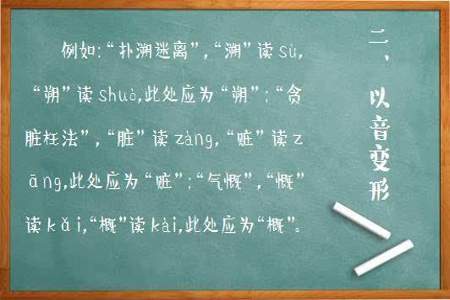 二、以音变形
例如:“扑溯迷离”,“溯”读sù,
“朔”读shuò,此处应为“朔”;“贪
脏枉法”,“脏”读zàng,“赃”读z
āng,此处应为“赃”;“气慨”,“慨”
读kǎi,“概”读kài,此处应为“概”。